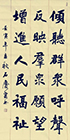 傾聽群眾呼聲
反映群眾願望
增進人民福祉